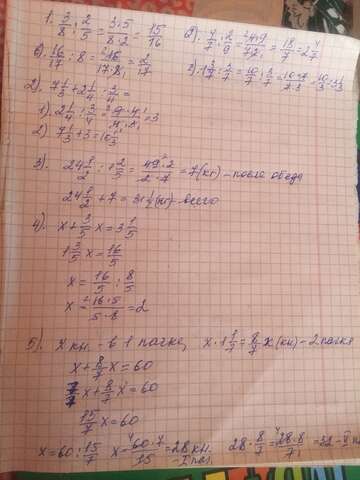 1. 3/8 : 2/5 = 3·5/8·2 = 15/16 2). 4/7 : 2/9 = 4·9/7·2 = 18/7 = 2 4/7
в). 16/17 : 8 = 16/17·8 = 2/17 г). 1 3/7 : 3/7 = 10/7 : 3/7 = 10·7/7·3 = 10/3 = 3 1/3
2). 7 1/3 + 2 1/4 : 3/4 =
1). 2 1/4 : 3/4 = 9·4/4·3 = 3
2) 7 1/3 + 3 = 10 1/3
3) 24 1/2 : = 49·2/2·7 = 7 (кг) – после обеда
24 1/2 + 7 = 31 1/2 (кг) всего
4) x + 3/5 x = 3 1/5
1 3/5 x = 16/5
x = 16/5 : 8/5
x = 16·5/5·8 = 2
5). x кн. – в 1 пачке, x · 1 1/7 = 8/7 x (кн) – 2 пачка
x + 8/7 x = 60
7/7 x + 8/7 x = 60
15/7 x = 60
x = 60 : 15/7 x = 60·7/15 = 28 кн. – I пач. 28 · 8/7 = 28·8/7 = 32 – II